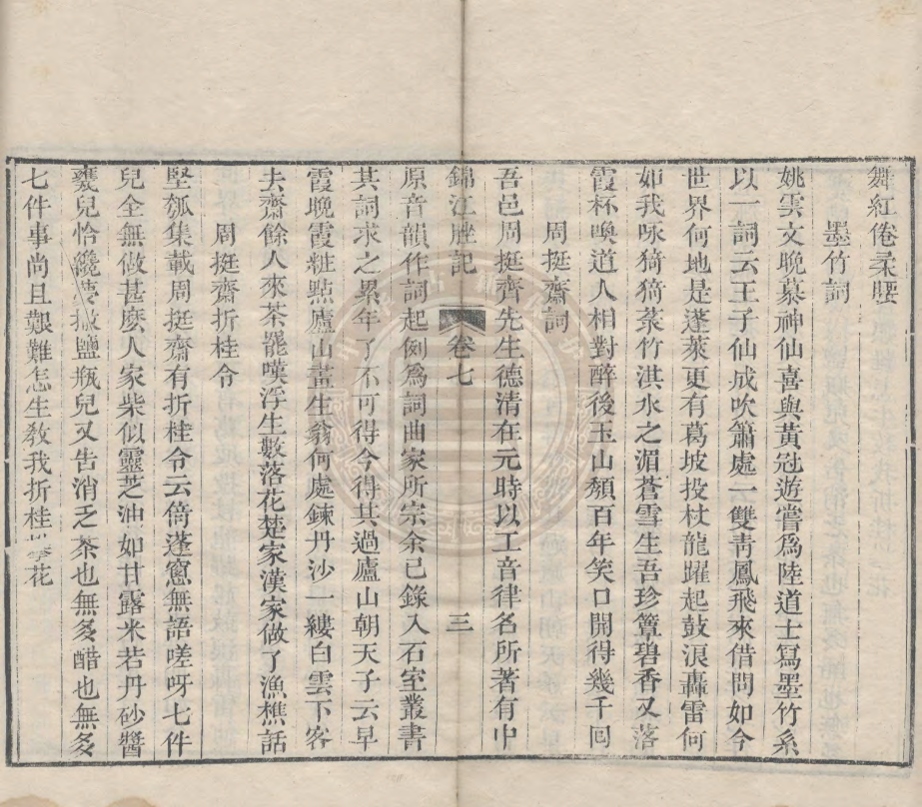 舞紅倦柔腰
墨竹詞
姚雲文晚慕神仙喜與黃冠遊嘗爲陸道士寫墨竹系
以一詞云王子仙成吹簫處一雙靑鳳飛來借問如今
世界何地是蓬萊更有葛坡投杖龍躍起鼓浪轟雷何
如我咏猗猗菉竹淇水之湄蒼雪生吾珍簟碧香又落
霞杯喚道人相對醉後玉山頽百年笑口開得幾千回
周挺齋詞
吾邑周挺齊先生德清在元時以工音律名所著有中
錦江脞記
卷七
三
原音韻作詞起例爲詞曲家所宗余已錄入石室叢書
其詞求之累年了不可得今得其過廬山朝天子云早
霞晚霞粧點廬山畫生翁何處鍊丹沙一縷白雲下客
去齋餘人來茶罷嘆浮生數落花楚家漢家做了漁樵話
周挺齋折桂令
堅瓠集載周挺齋有折桂令云倚蓬窻無語嗟呀七件
兒全無做甚麽人家柴似靈芝油如甘露米若丹砂醬
甕兒恰纔夢撒鹽瓶兒又告消乏茶也無多醋也無多
七件事尚且艱難怎生敎我折桂攀花